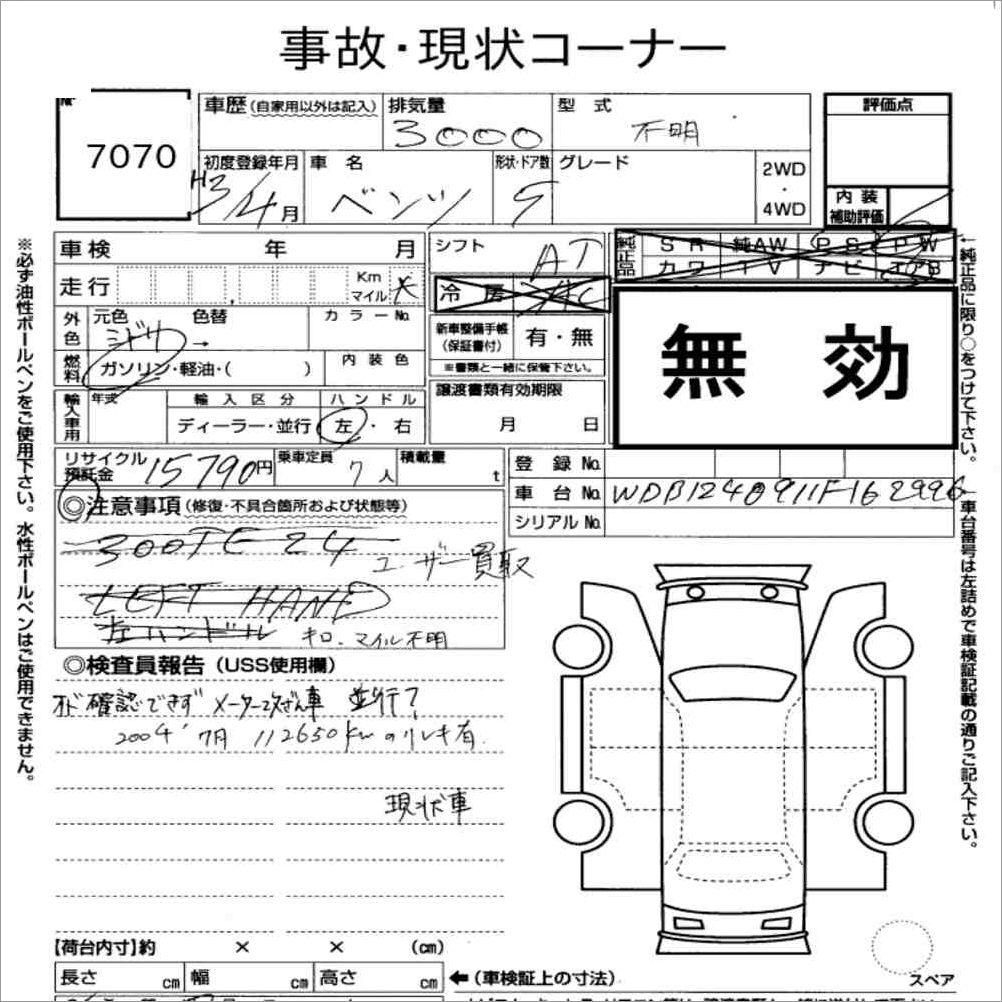 事故・現状コーナー
7070
車歴(自家用以外は記入)
排気量
3000
型式
不明
評価点
初度登録年月
H3/4月
車名
ベンツ
形状・ドア数
グレード
2WD
・
4WD
内装
補助評価
※必ず油性ボールペンをご使用下さい。水性ボールペンはご使用できません。
車検 年 月
シフト
AT
純正品
SR 純AW PS PW
カワ TV ナビ エアB
走行 Km マイル
冷房
外色
元色 色替 カラーNo.
ミドリ →
新車整備手帳
(保証書付)
有・無
※書類と一緒に保管下さい。
無効
燃料
ガソリン・軽油・( )
内装色
輸入車用
年式
輸入区分
ハンドル
ディーラー・並行
左・右
譲渡書類有効期限
月 日
←純正品に限り○をつけて下さい。
リサイクル
預託金
15790円
乗車定員
7人
積載量
t
登録No.
車台No. WDB1240911F162996
シリアルNo.
←車台番号は左詰めで車検証記載の通りご記入下さい。
◎注意事項(修復・不具合箇所および状態等)
300TE 24
ユーザー買取
LEFT HAND
左ハンドル
キロ、マイル不明
◎検査員報告(USS使用欄)
確認できず メーター改ざん車 並行?
2004' 7月 112650kmのリレキ有.
現状車
【荷台内寸】約 × × (cm)
長さ cm 幅 cm 高さ cm
←(車検証上の寸法)
スペア